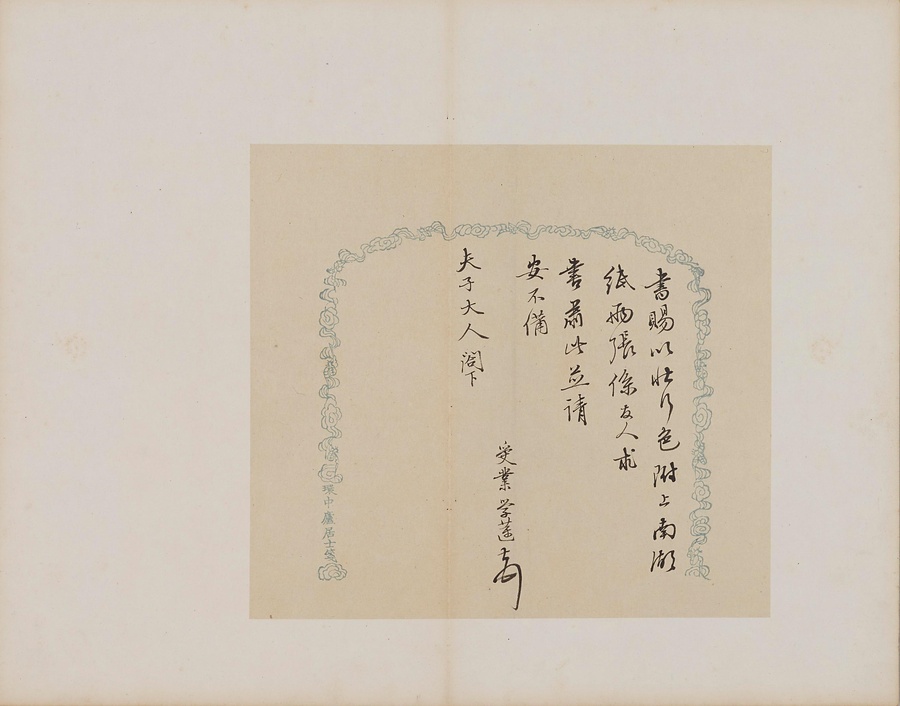 書賜以壯行色附上南湖
紙兩張係友人求
書肅此並請
安不備
夫子大人閣下
受業学蓮
環中廬居士箋